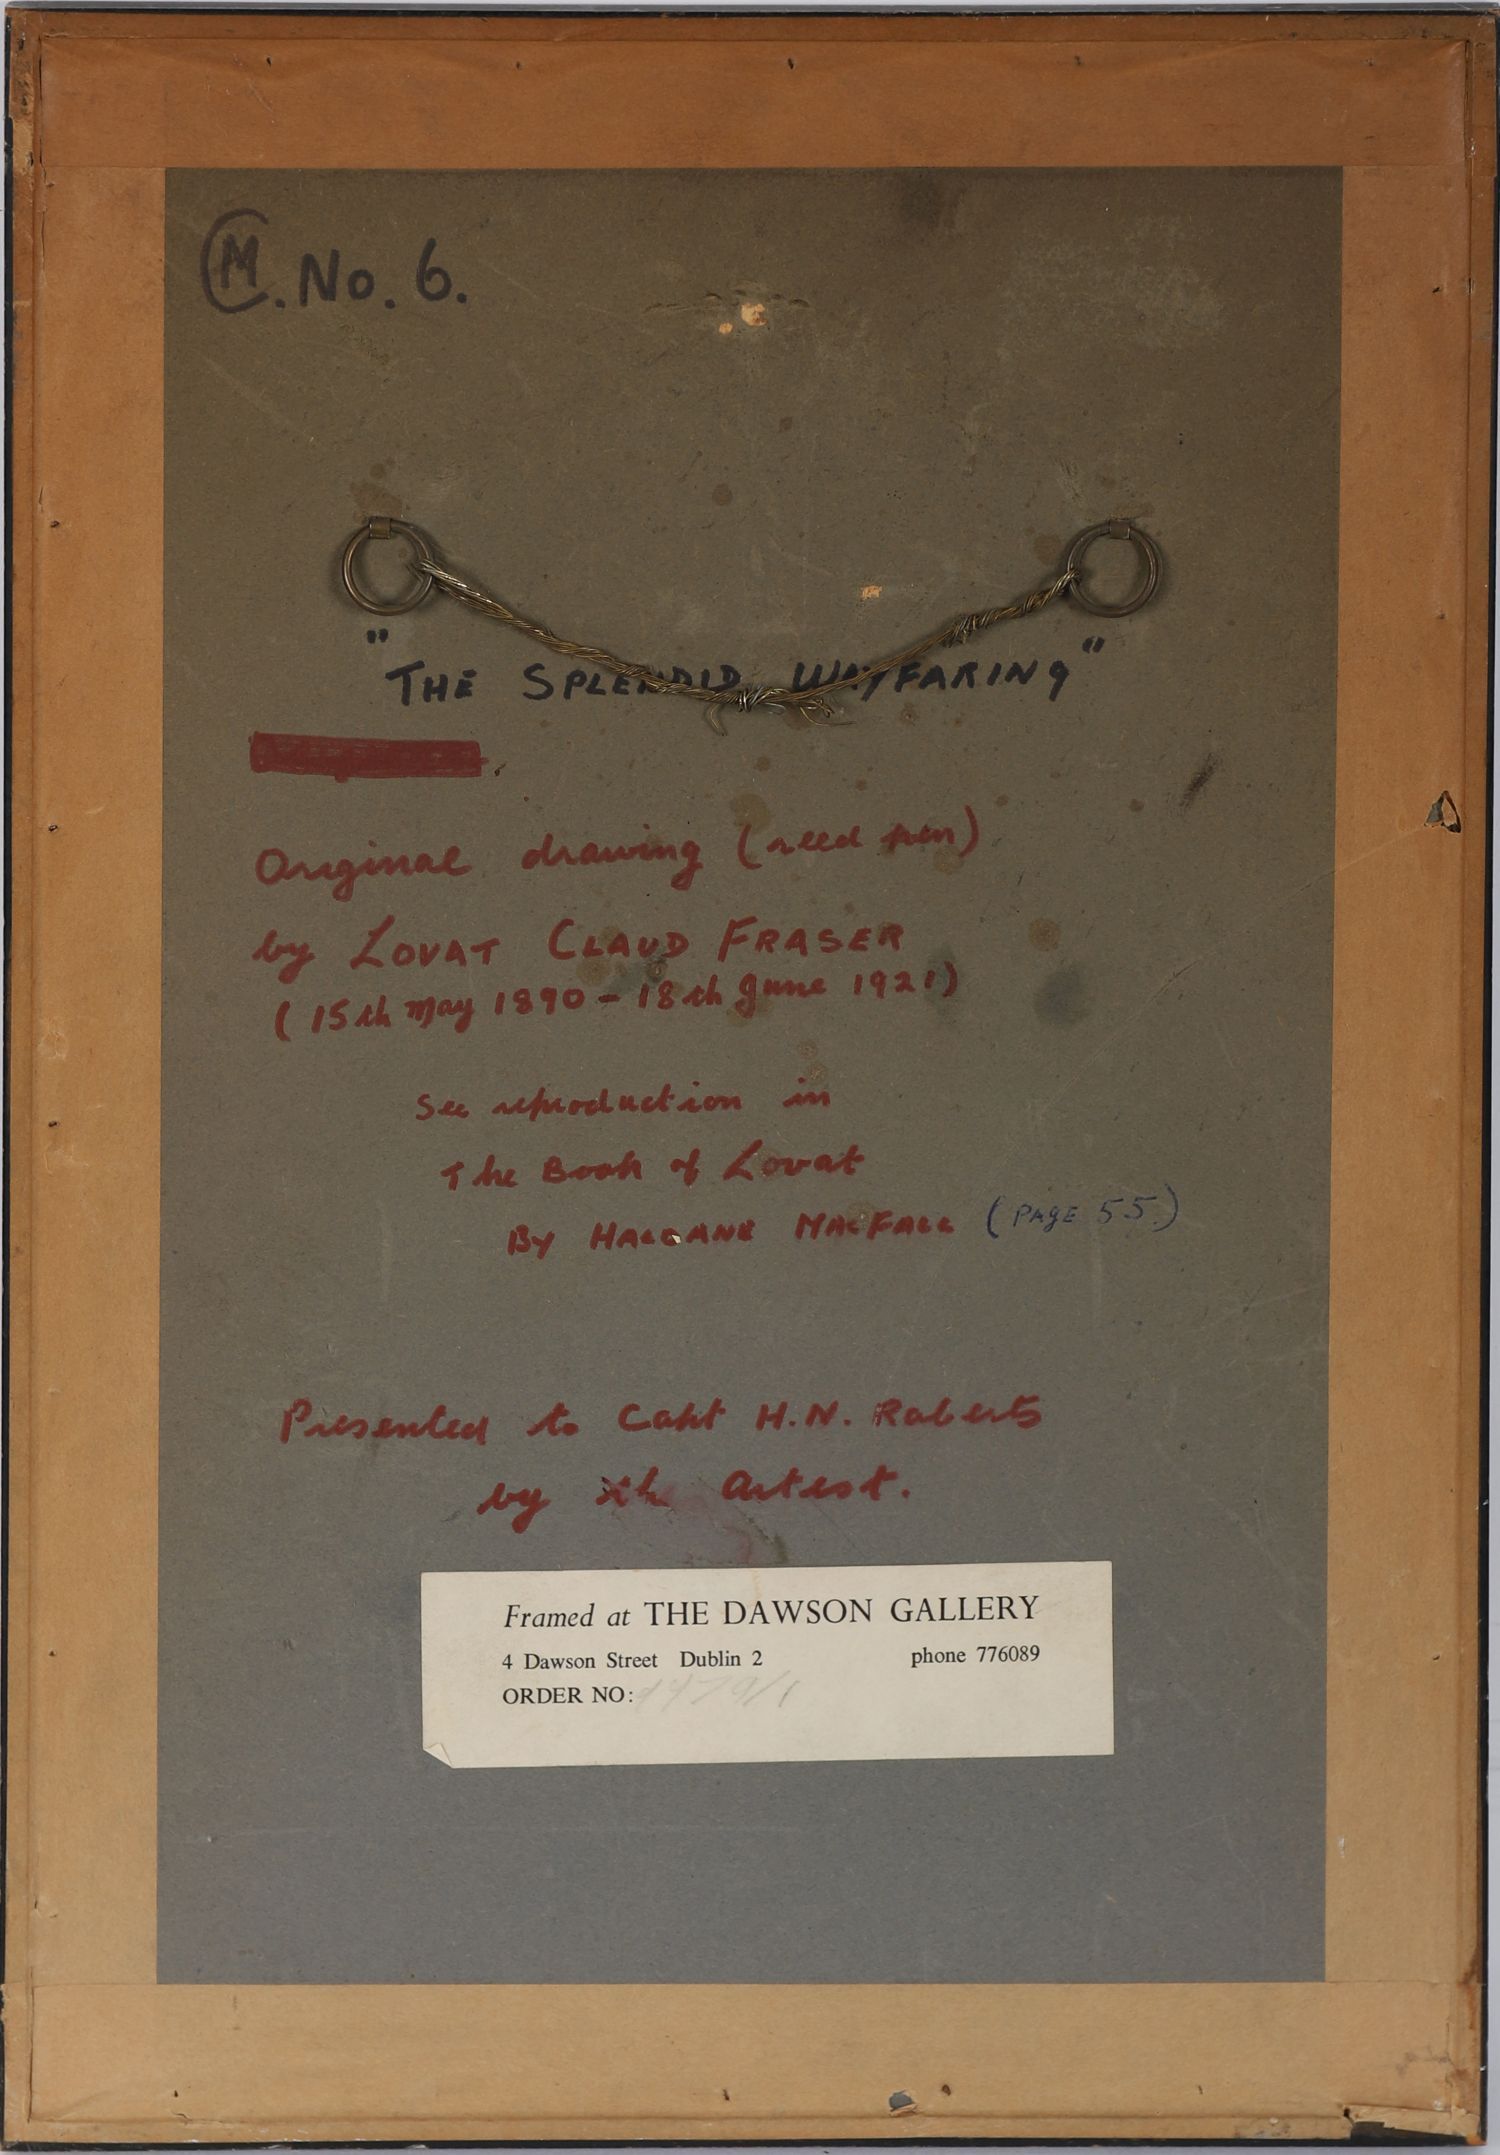 M. No. 6.
"THE SPLENDID WAYFARING"
Original drawing (reed pen)
by LOVAT CLAUD FRASER
(15th May 1890 - 18th June 1921)
See reproduction in
The Book of Lovat
BY HALDANE MACFALL (PAGE 55.)
Presented to Capt H.N. Roberts
by the Artist.
Framed at THE DAWSON GALLERY
4 Dawson Street Dublin 2 phone 776089
ORDER NO: